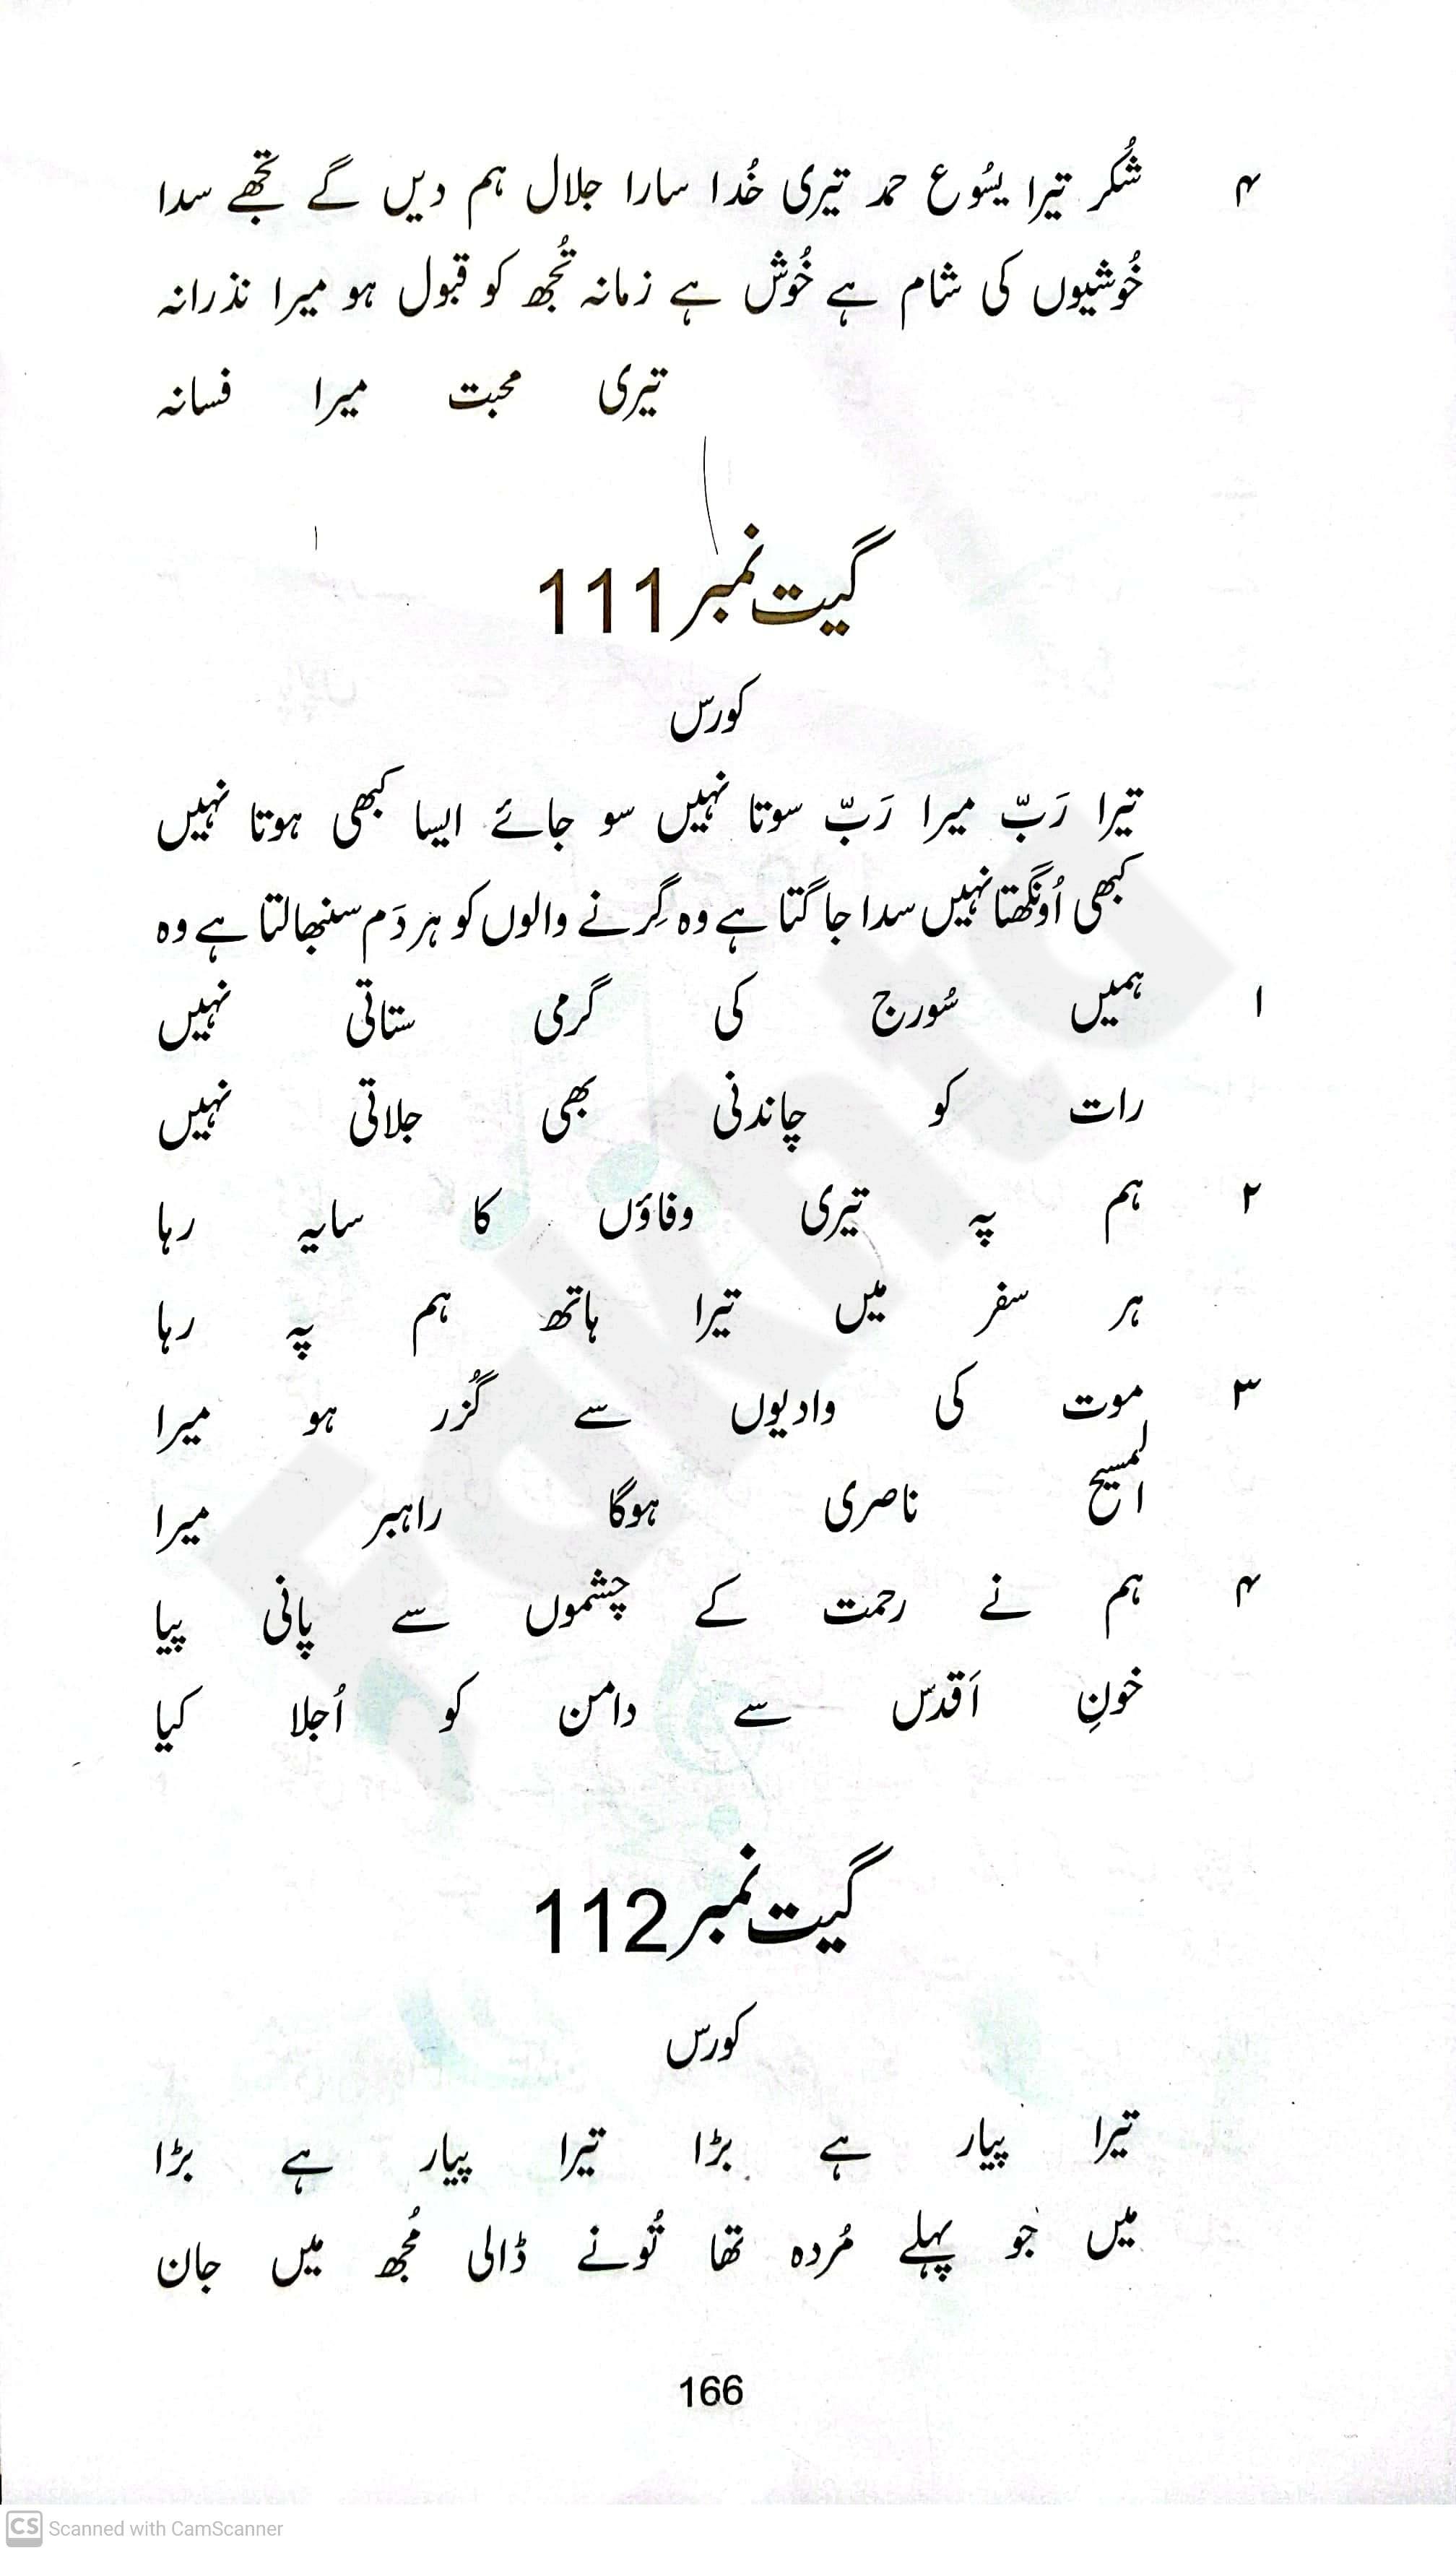 ۴ شُکر تیرا یسُوع حمد تیری خُدا سارا جلال ہم دیں گے تجھے سدا
خُوشیوں کی شام ہے خُوش ہے زمانہ تُجھ کو قبول ہو میرا نذرانہ
تیری محبت میرا فسانہ
گیت نمبر 111
کورس
تیرا رَبّ میرا رَبّ سوتا نہیں سو جائے ایسا کبھی ہوتا نہیں
کبھی اُونگھتا نہیں سدا جاگتا ہے وہ گِرنے والوں کو ہر دَم سنبھالتا ہے وہ
۱ ہمیں سُورج کی گرمی ستاتی نہیں
رات کو چاندنی بھی جلاتی نہیں
۲ ہم پہ تیری وفاؤں کا سایہ رہا
ہر سفر میں تیرا ہاتھ ہم پہ رہا
۳ موت کی وادیوں سے گُزر ہو میرا
المسیح ناصری ہوگا راہبر میرا
۴ ہم نے رحمت کے چشموں سے پانی پیا
خونِ اَقدس سے دامن کو اُجلا کیا
گیت نمبر 112
کورس
تیرا پیار ہے بڑا تیرا پیار ہے بڑا
میں جو پہلے مُردہ تھا تُونے ڈالی مُجھ میں جان
166
Fakhta
CS Scanned with CamScanner